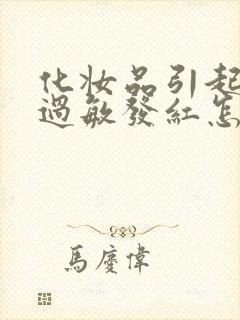 化妆品引起
過敏發紅怎
馬慶偉